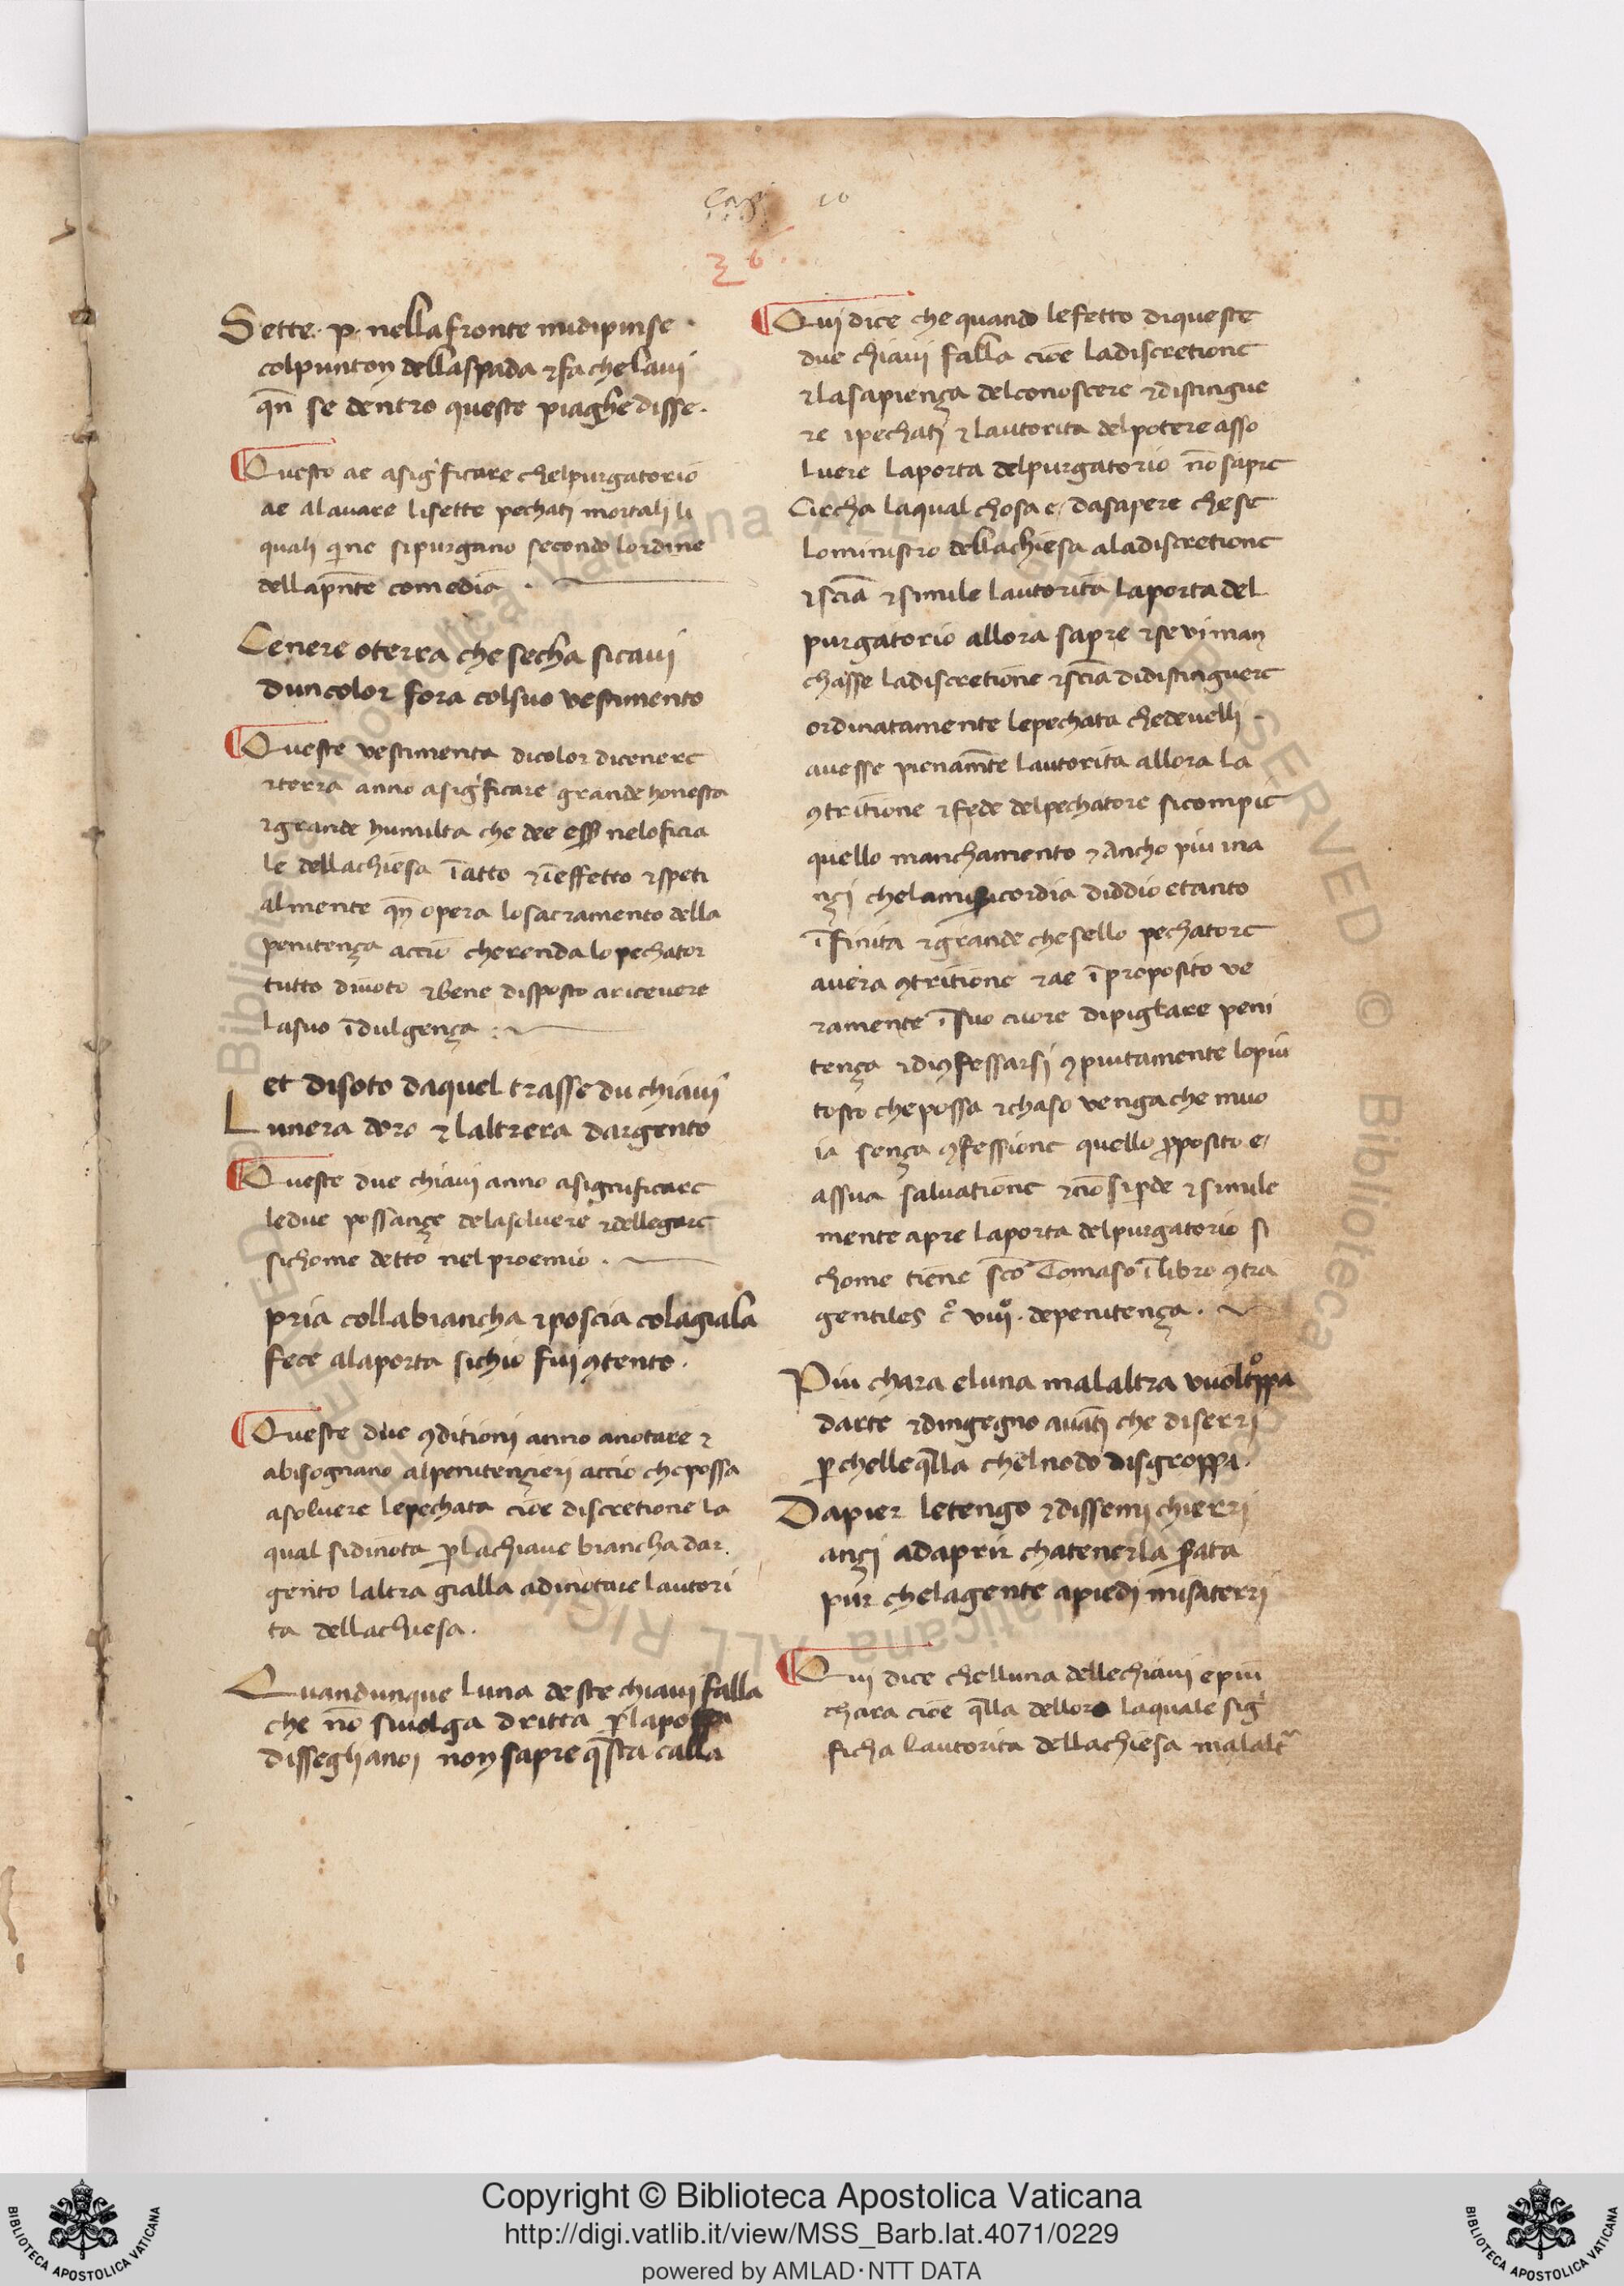 Cap 10
26.
Sette. p. nella fronte midipinse.
colpunton dellaspada ⁊fa chelaui
qn̄ se dentro queste piaghe disse.
Questo ae asig̉ficare chelpurgatorio
ae alauare lisette pechati mortali li
quali qi ne sipurgano secondo lordine
dellapn̄te comedia .
Cenere oterra che secha sicaui
duncolor fora colsuo vestimento
Queste vestimenta dicolor dicenere
⁊terra anno asig̉ficare grande honesta
⁊grande humilta che dee ess̄ neloficia
le dellachiesa ī atto ⁊ī effetto ⁊speti
almente qn̄ opera losacramento della
penitença accio cherenda lo pechator
tutto diuoto ⁊bene disposto aricevere
lasuo īdulgença .
et disoto daquel trasse du chiaui
Lunera doro ⁊ laltrera dargento
Queste due chiaui anno asignificare
ledue possançe delasoluere ⁊dellegare
sichome detto nel proemio .
pria collabiancha ⁊poscia colagialla
fece alaporta sichio fui ꝯtento .
Queste due ꝯditioni anno anotare ⁊
abisognano alpenitençieri accio chepossa
asoluere lepechata cioe discretione la
qual sidinota ꝑ lachiaue biancha dar.
gento laltra gialla adinotare lautori
ta dellachiesa .
Quandunque luna deste chiaui falla
che nō siuolga dritta ꝑ lapossa
disseglianoi non sapre q̄sta calla
Qui dice che quando lefetto diqueste
due chiaui falla cioe ladiscretione
⁊lasapiença delconoscere ⁊distingue
re ipechati ⁊ lautorita delpotere asso
luere laporta delpurgatorio nō sapre
Circha laqual chosa e/ dasapere che se
lo ministro dellachiesa a ladiscretione
⁊sciā ⁊simile lautorita laporta del
purgatorio allora sapre ⁊se vi man
chasse ladiscretione ⁊sciā didistinguere
ordinatamente lepechata chedeuelli.
auesse pienamēte lautorita allora la
ꝯtritione ⁊fede delpechatore sicompie
quello manchamento ⁊ancho piu ina
nçi chelamisicordia diddio etanto
īfinita ⁊grande chesello pechatore
auera ꝯtritione ⁊ae ī proposito ve
ramente ī suo cuore dipigliare peni
tença ⁊diꝯfessarsi ꝯpiutamente lopiu
tosto chepossa ⁊chaso vengache muo
ia sença ꝯfessione quello ꝓposito e/
assua saluatione ⁊nō si ꝑde ⁊simile
mente apre laporta delpurgatorio si
chome tiene sco Tomaso ī libro ꝯtra
gentiles co viiio. depenitença .
Piu chara eluna malaltra vuoltroppa
darte ⁊dingegno auāti che diserri
ꝑ chelleq̄lla chelnodo disgroppi .
Dapier letengo ⁊dissemi chierri
ançi adaprir chatenerla ꝑata
pur chelagente apiedi misaterri
Qui dice chelluna dellechiaui epiu
chara cioe q̄lla delloro laquale sig̉
ficha lautorita dellachiesa malaltra
Copyright © Biblioteca Apostolica Vaticana
http://digi.vatlib.it/view/MSS_Barb.lat.4071/0229
powered by AMLAD·NTT DATA
BIBLIOTECA APOSTOLICA VATICANA
BIBLIOTECA APOSTOLICA VATICANA